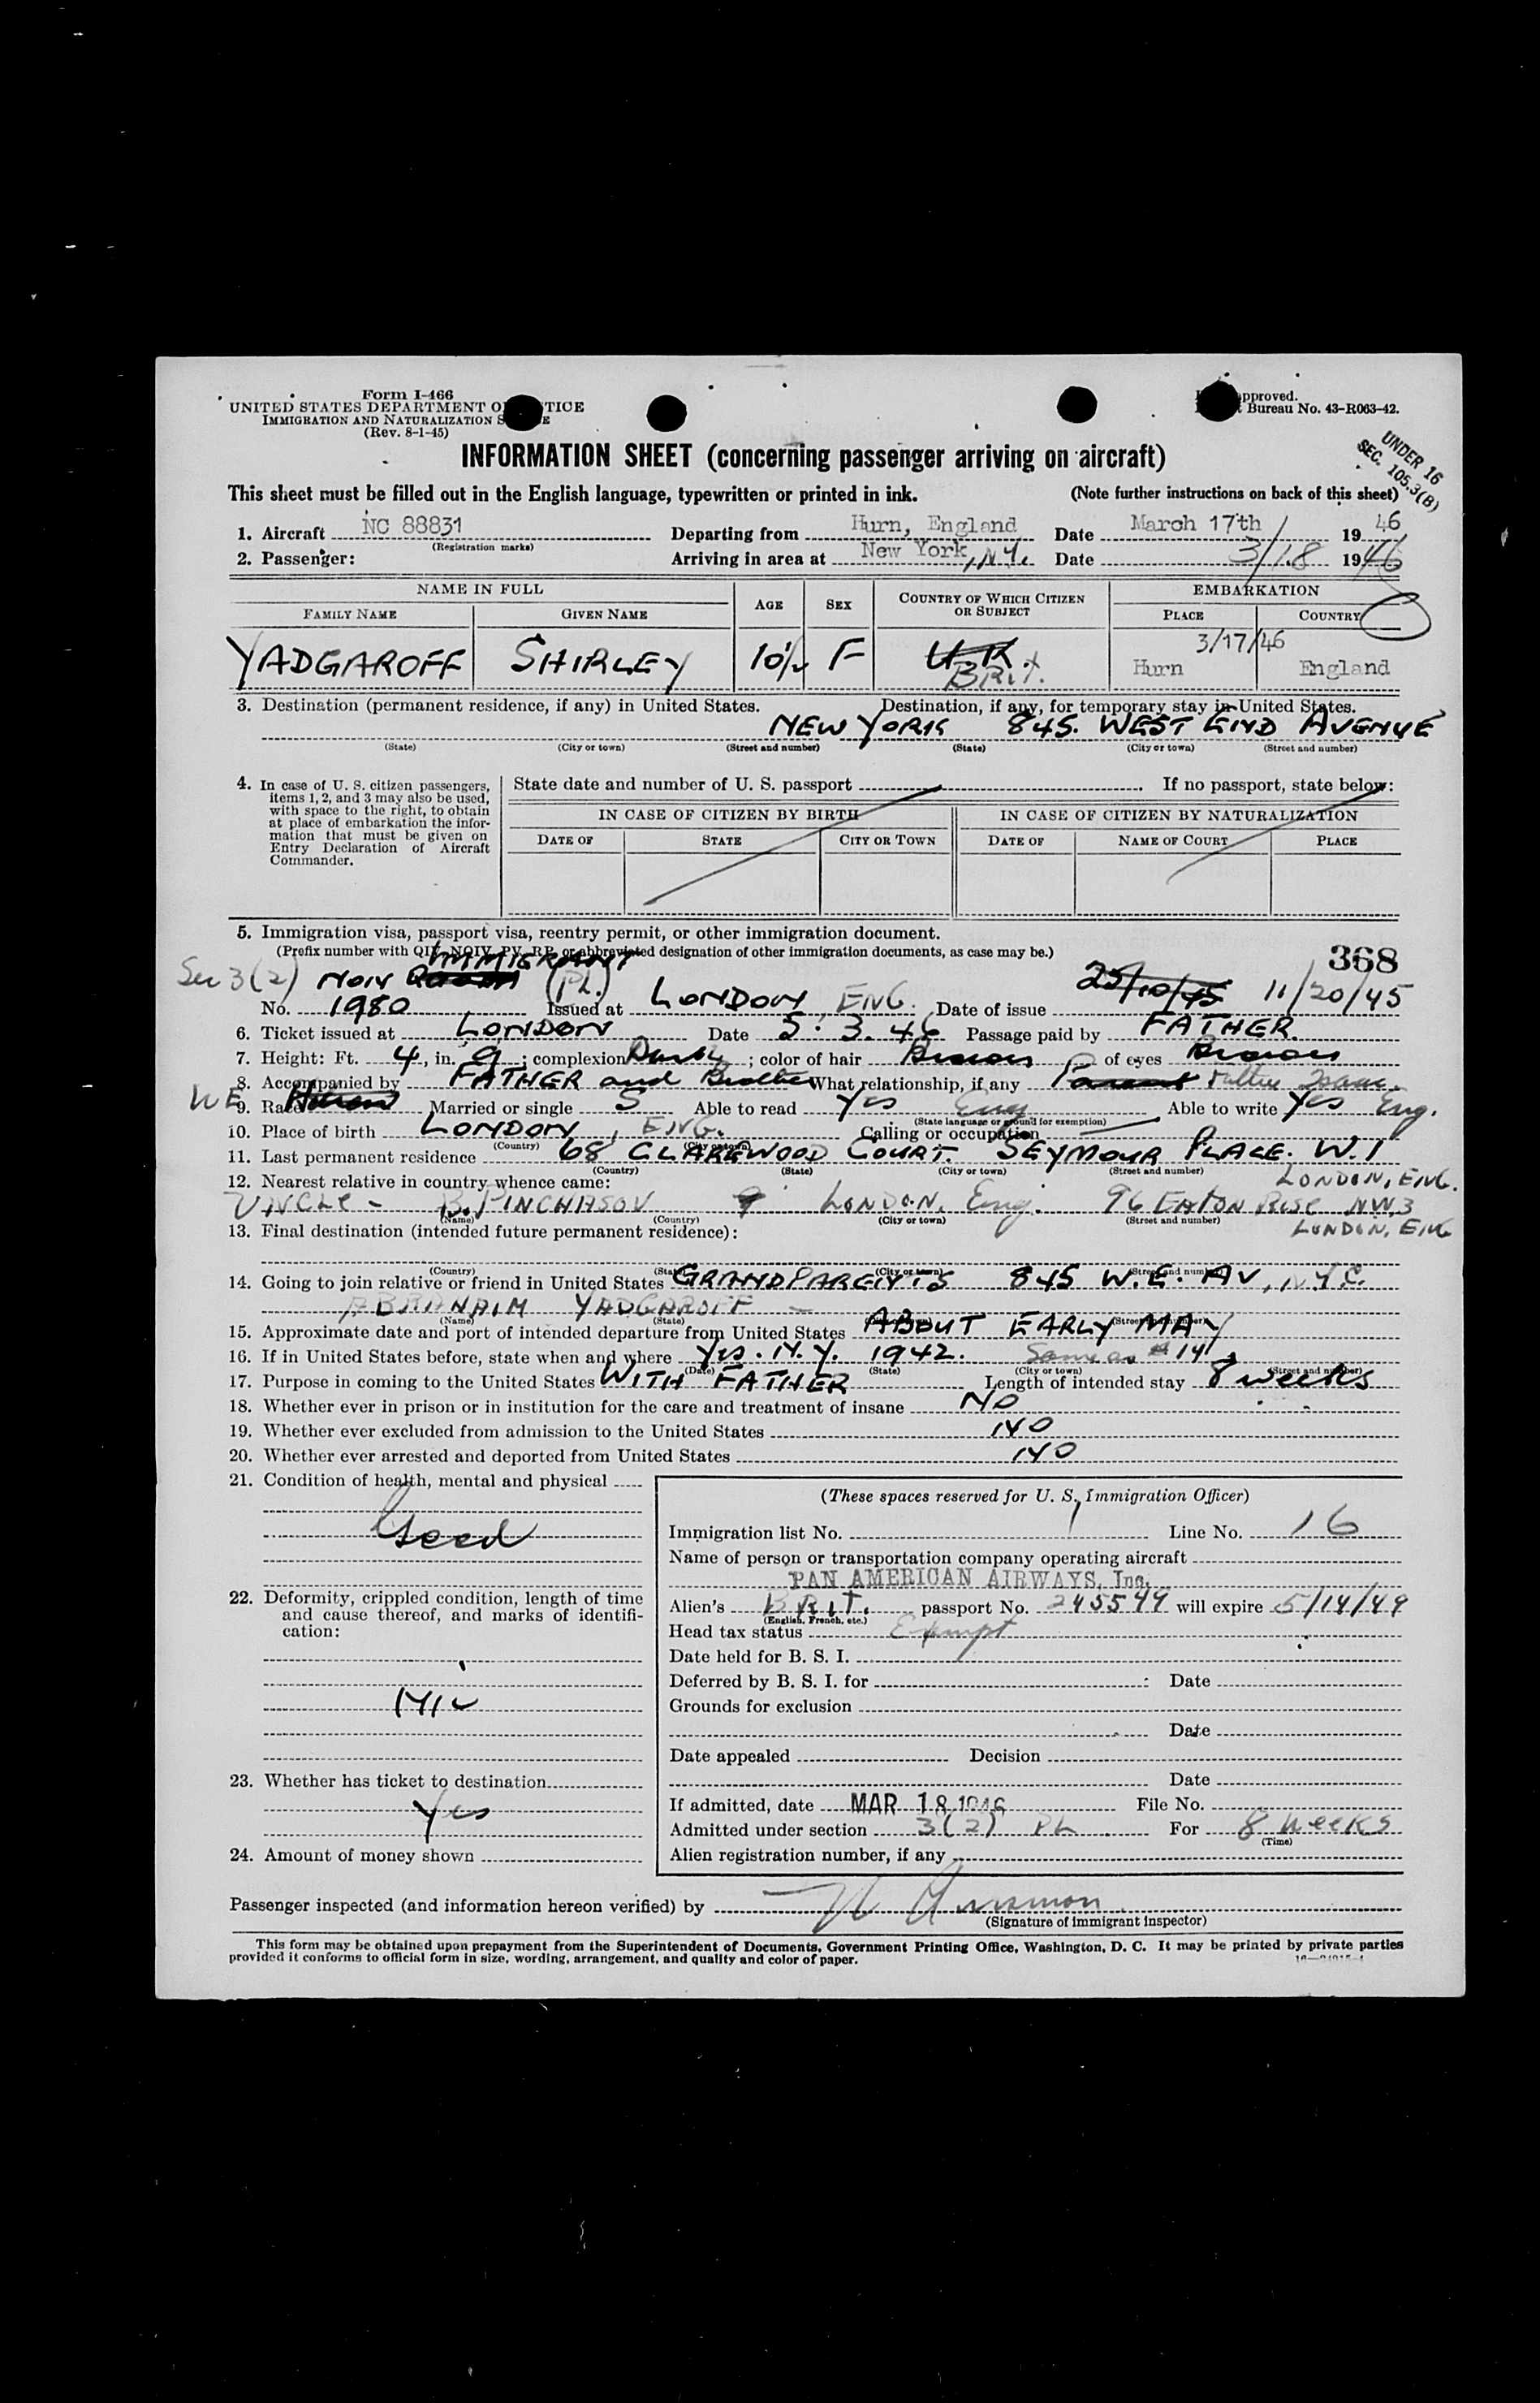 Form I-466
UNITED STATES DEPARTMENT OF JUSTICE
IMMIGRATION AND NATURALIZATION SERVICE
(Rev. 8-1-45)
pproved.
Bureau No. 43-R063-42.
UNDER 16
SEC. 105.3(B)
INFORMATION SHEET (concerning passenger arriving on aircraft)
This sheet must be filled out in the English language, typewritten or printed in ink. (Note further instructions on back of this sheet)
1. Aircraft NC 88831 Departing from Hurn, England Date March 17th 1946
(Registration marks)
2. Passenger: Arriving in area at New York, N.Y. Date 3/18 1946
NAME IN FULL AGE SEX COUNTRY OF WHICH CITIZEN OR SUBJECT EMBARKATION
FAMILY NAME GIVEN NAME PLACE COUNTRY
3/17/46
YADGAROFF SHIRLEY 10½ F U.K. BRIT. Hurn England
3. Destination (permanent residence, if any) in United States. Destination, if any, for temporary stay in United States.
NEW YORK 845. WEST END AVENUE
(State) (City or town) (Street and number) (State) (City or town) (Street and number)
4. In case of U. S. citizen passengers, items 1, 2, and 3 may also be used, with space to the right, to obtain at place of embarkation the information that must be given on Entry Declaration of Aircraft Commander.
State date and number of U. S. passport If no passport, state below:
IN CASE OF CITIZEN BY BIRTH IN CASE OF CITIZEN BY NATURALIZATION
DATE OF STATE CITY OR TOWN DATE OF NAME OF COURT PLACE
5. Immigration visa, passport visa, reentry permit, or other immigration document.
(Prefix number with QIV, NQIV, PV, RP, or abbreviated designation of other immigration documents, as case may be.) 368
Sec 3(2) NON IMMIGRANT (PL.) 25/10/45 11/20/45
No. 1980 Issued at LONDON, ENG. Date of issue
6. Ticket issued at LONDON Date 5. 3. 46 Passage paid by FATHER.
7. Height: Ft. 4, in. 9; complexion Dark; color of hair Brown of eyes Brown
8. Accompanied by FATHER and Brother What relationship, if any Parent Father Isaac
WE
9. Race Married or single S Able to read Yes Eng Able to write Yes Eng.
(State language or ground for exemption)
10. Place of birth LONDON, ENG. Calling or occupation
(Country) (City or town)
11. Last permanent residence 68 CLAREWOOD COURT. SEYMOUR PLACE. W.1
(Country) (State) (City or town) (Street and number)
LONDON, ENG.
12. Nearest relative in country whence came:
UNCLE - B. PINCHASOV LONDON, Eng. 96 EATON RISE NW3
(Name) (Country) (City or town) (Street and number)
LONDON, ENG
13. Final destination (intended future permanent residence):
(Country) (State) (City or town) (Street and number)
14. Going to join relative or friend in United States GRANDPARENTS 845 W.E. AV, N.Y.C.
ABRAHAIM YADGAROFF -
(Name) (State) (Street and number)
15. Approximate date and port of intended departure from United States ABOUT EARLY MAY
16. If in United States before, state when and where Yes. N.Y. 1942. Same as #14
(Date) (State) (City or town) (Street and number)
17. Purpose in coming to the United States WITH FATHER Length of intended stay 8 weeks
18. Whether ever in prison or in institution for the care and treatment of insane NO
19. Whether ever excluded from admission to the United States NO
20. Whether ever arrested and deported from United States NO
21. Condition of health, mental and physical
Good
22. Deformity, crippled condition, length of time and cause thereof, and marks of identification:
NIL
23. Whether has ticket to destination
Yes
24. Amount of money shown
(These spaces reserved for U. S. Immigration Officer)
Immigration list No. 1 Line No. 16
Name of person or transportation company operating aircraft
PAN AMERICAN AIRWAYS, Inc.
Alien's BRIT. passport No. 245544 will expire 5/14/49
(English, French, etc.)
Head tax status Exempt
Date held for B. S. I.
Deferred by B. S. I. for Date
Grounds for exclusion
Date
Date appealed Decision
Date
If admitted, date MAR 18 1946 File No.
Admitted under section 3(2) PL For 8 weeks
(Time)
Alien registration number, if any
Passenger inspected (and information hereon verified) by
(Signature of immigrant inspector)
This form may be obtained upon prepayment from the Superintendent of Documents, Government Printing Office, Washington, D. C. It may be printed by private parties
provided it conforms to official form in size, wording, arrangement, and quality and color of paper.